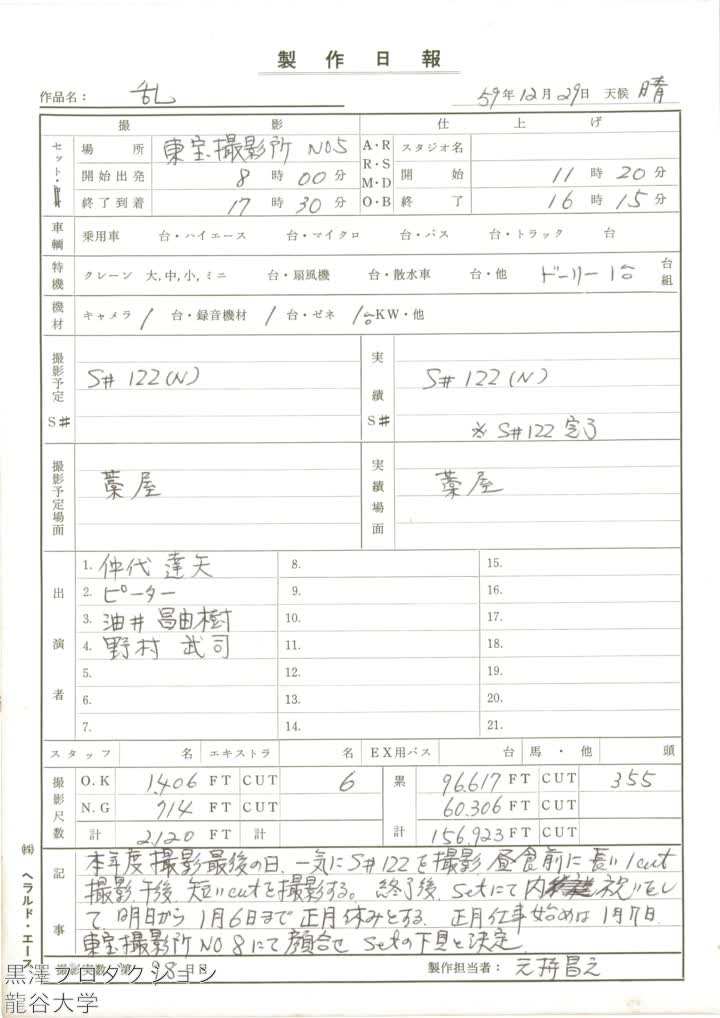 製作日報
作品名： 乱 59年12月29日 天候 晴
撮影 仕上げ
セット・ 場所 東宝撮影所 NO5 A・R R・S M・D O・B スタジオ名
開始出発 8時00分 開始 11時20分
終了到着 17時30分 終了 16時15分
車輌 乗用車 台・ハイエース 台・マイクロ 台・バス 台・トラック 台
特機 クレーン 大,中,小,ミニ 台・扇風機 台・散水車 台・他 ドーリー 1台 台組
機材 キャメラ 1 台・録音機材 1 台・ゼネ 1台KW・他
撮影予定 S# S# 122(N) 実績 S# S# 122(N)
※ S#122 完了
撮影予定場面 藁屋 実績場面 藁屋
出演者
1. 仲代達矢 8. 15.
2. ピーター 9. 16.
3. 油井昌由樹 10. 17.
4. 野村武司 11. 18.
5. 12. 19.
6. 13. 20.
7. 14. 21.
スタッフ 名 エキストラ 名 EX用バス 台 馬・他 頭
撮影尺数 O.K 1,406 FT CUT 6 累計 96.617 FT CUT 355
N.G 714 FT CUT 60.306 FT CUT
計 2,120 FT 計 156,923 FT
記事
本年度撮影最後の日、一気にS#122を撮影 昼食前に長い1cut
撮影、午後、短いcutを撮影する。 終了後、setにて内 祝いをし
て、明日から1月6日まで正月休みとする。 正月仕事始めは1月7日、
東宝撮影所NO8にて顔合せ setの下見と決定
撮影実数 第98日目 製作担当者： 元持昌之
㈱ ヘラルド・エース
黒澤プロダクション
龍谷大学